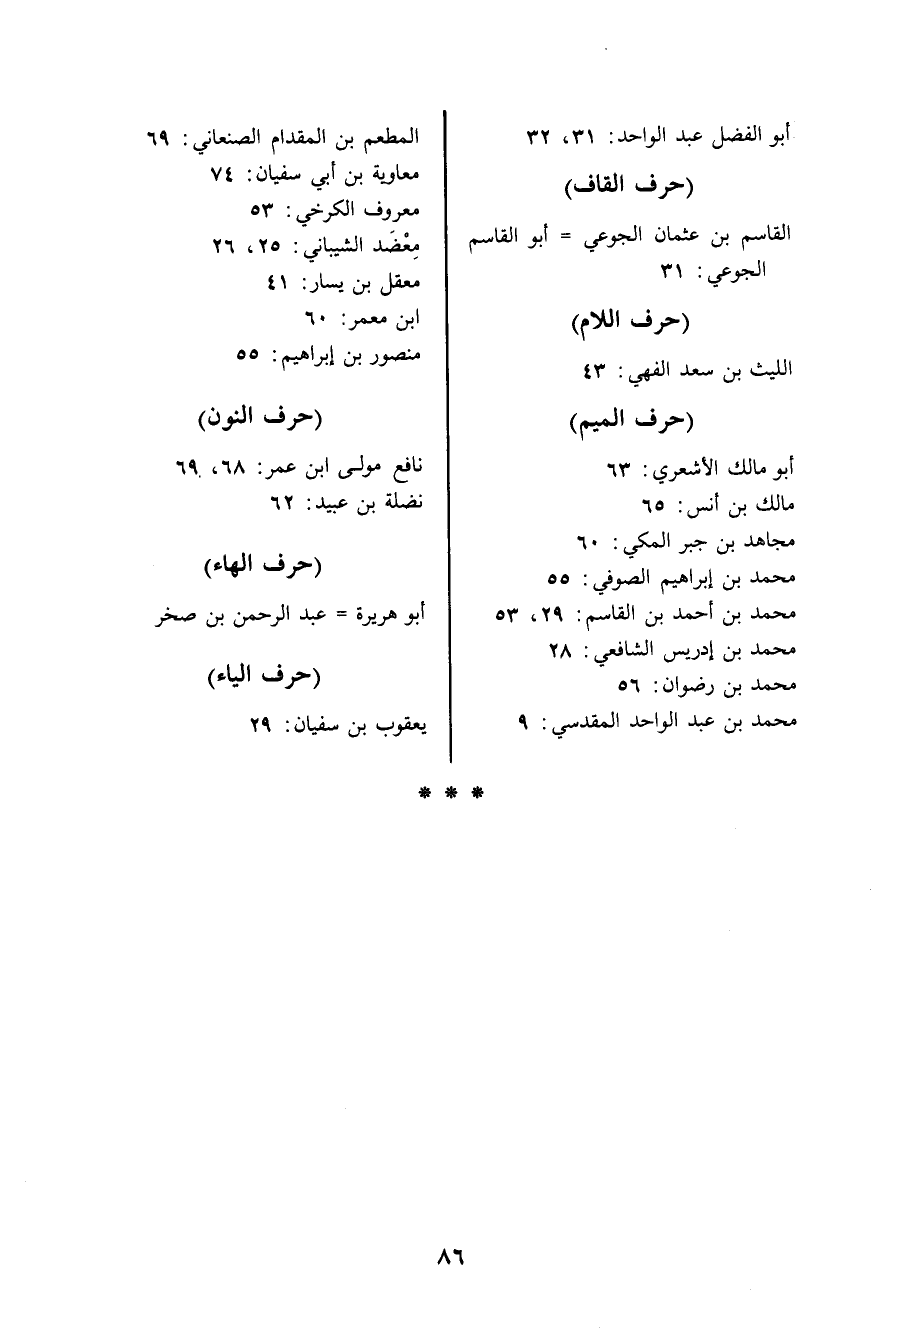 أبو الفضل عبد الواحد: ٣١، ٣٢
(حرف القاف)
القاسم بن عثمان الجوعي = أبو القاسم
الجوعي: ٣١
(حرف اللام)
الليث بن سعد الفهي: ٤٣
(حرف الميم)
أبو مالك الأشعري: ٦٣
مالك بن أنس: ٦٥
مجاهد بن جبر المكي: ٦٠
محمد بن إبراهيم الصوفي: ٥٥
محمد بن أحمد بن القاسم: ٢٩، ٥٣
محمد بن إدريس الشافعي: ٢٨
محمد بن رضوان: ٥٦
محمد بن عبد الواحد المقدسي: ٩
المطعم بن المقدام الصنعاني: ٦٩
معاوية بن أبي سفيان: ٧٤
معروف الكرخي: ٥٣
مِعْضَد الشيباني: ٢٥، ٢٦
معقل بن يسار: ٤١
ابن معمر: ٦٠
منصور بن إبراهيم: ٥٥
(حرف النون)
نافع مولى ابن عمر: ٦٨، ٦٩
نضلة بن عبيد: ٦٢
(حرف الهاء)
أبو هريرة = عبد الرحمن بن صخر
(حرف الياء)
يعقوب بن سفيان: ٢٩
* * *
٨٦